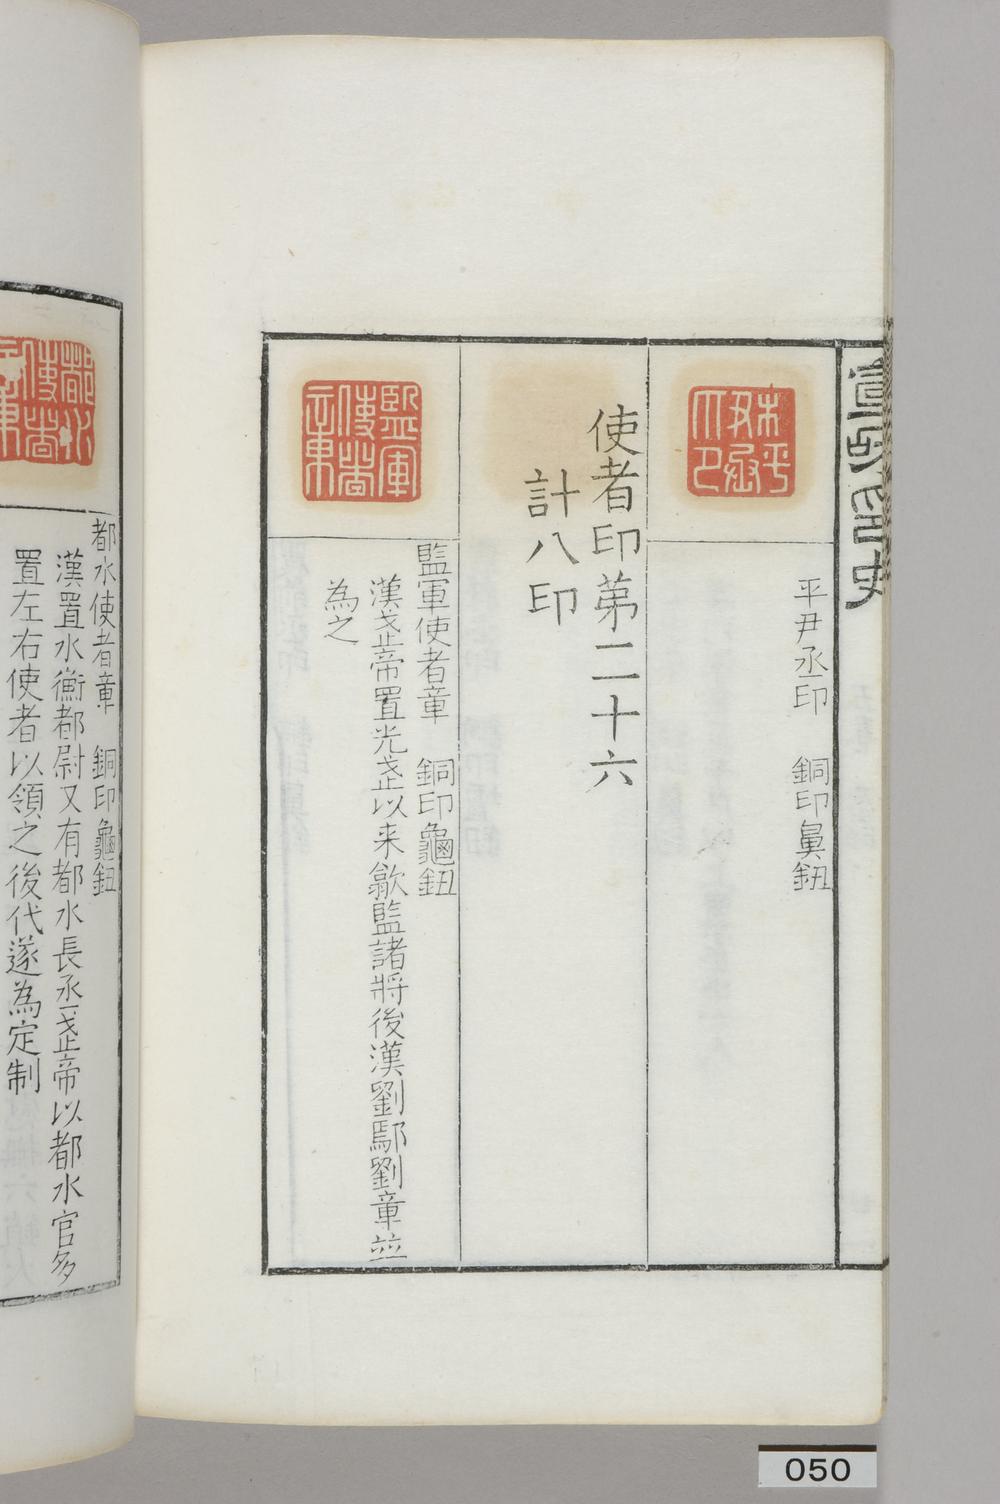 宣和印史
平尹丞印　銅印鼻鈕
使者印第二十六
計八印
監軍使者章
監軍使者章　銅印龜鈕
漢武帝置光武以来歙監諸將後漢劉鄢劉章並
為之
都水使者章　銅印龜鈕
漢置水衡都尉又有都水長丞武帝以都水官多
置左右使者以領之後代遂為定制
050